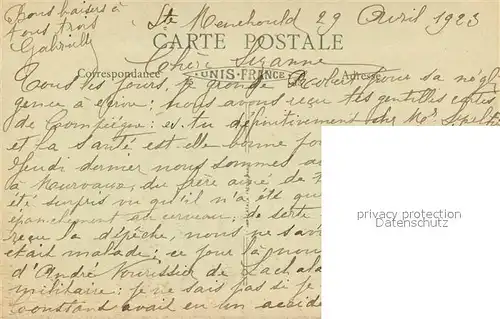 Bons baisers à
tous trois
Gabrielle
Ste Menehould 29 Avril 1923
CARTE POSTALE
Chère Suzanne
Correspondance
UNIS-FRANCE
Adresse
Tous les jours, je gronde pour sa négli
gence à écrire; nous avons reçu tes gentilles cartes
de Compiègne: es-tu définitivement chez Mr
et ta santé est-elle bonne
Jeudi dernier nous sommes
à du frère aîné de
été surpris vu qu'il n'a été que
épanchement au cerveau; de sorte
reçu la dépêche, nous ne
était malade; ce jour là nous
d'André de Lachala
militaire: je ne sais pas si je
constant avait eu un accide
privacy protection
Datenschutz